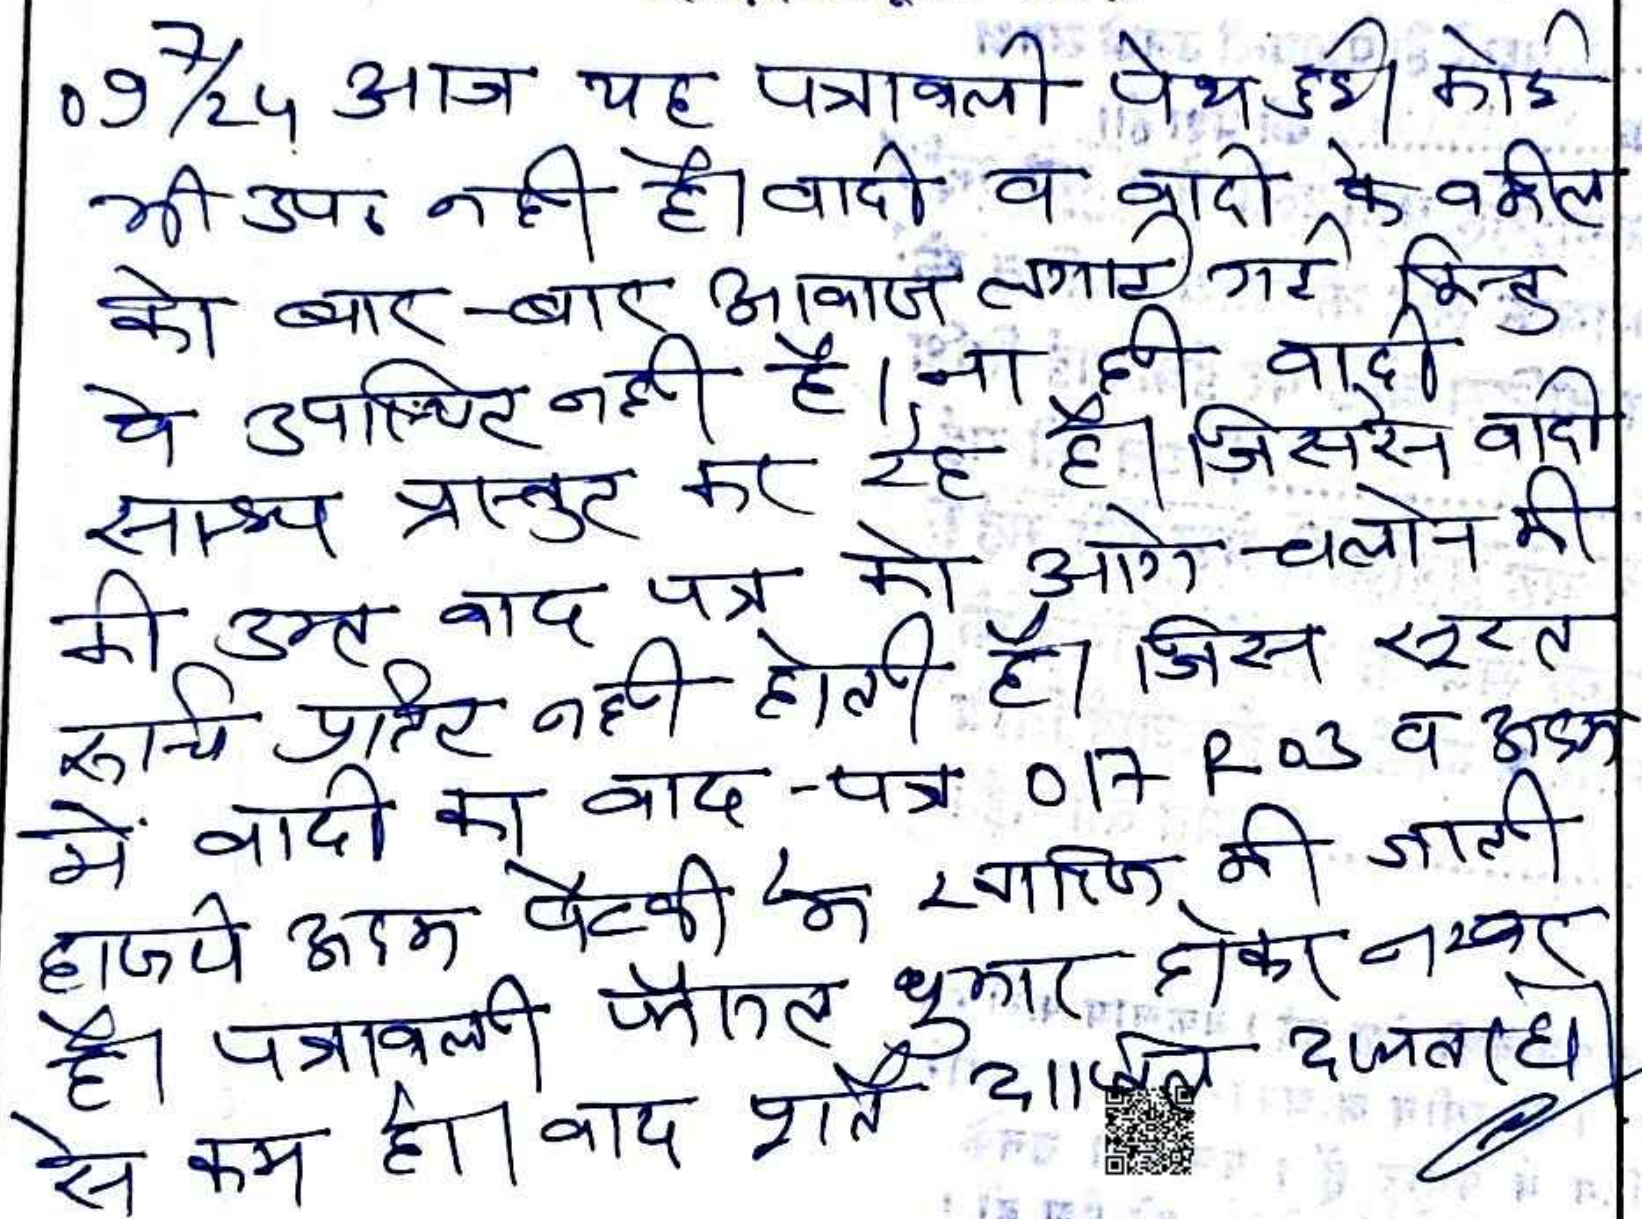 09/7/24 आज यह पत्रावली पेश हुई। कोई
भी उप. नही है। वादी व वादी के वकील
को बार-बार आवाज लगाई गई किन्तु
वे उपस्थित नही है। ना ही वादी
साक्ष्य प्रस्तुत कर रहे है। जिससे वादी
की उक्त वाद पत्र को आगे चलाने की
रूचि प्रतित नही होती है। जिस सूरत
में वादी का वाद-पत्र O17 R03 व अदम
हाजरी अदम पैरवी में खारिज की जाती
है। पत्रावली फैसल शुमार होकर नम्बर
से कम हो। बाद शर्त दाखिल दफ्तर हो।